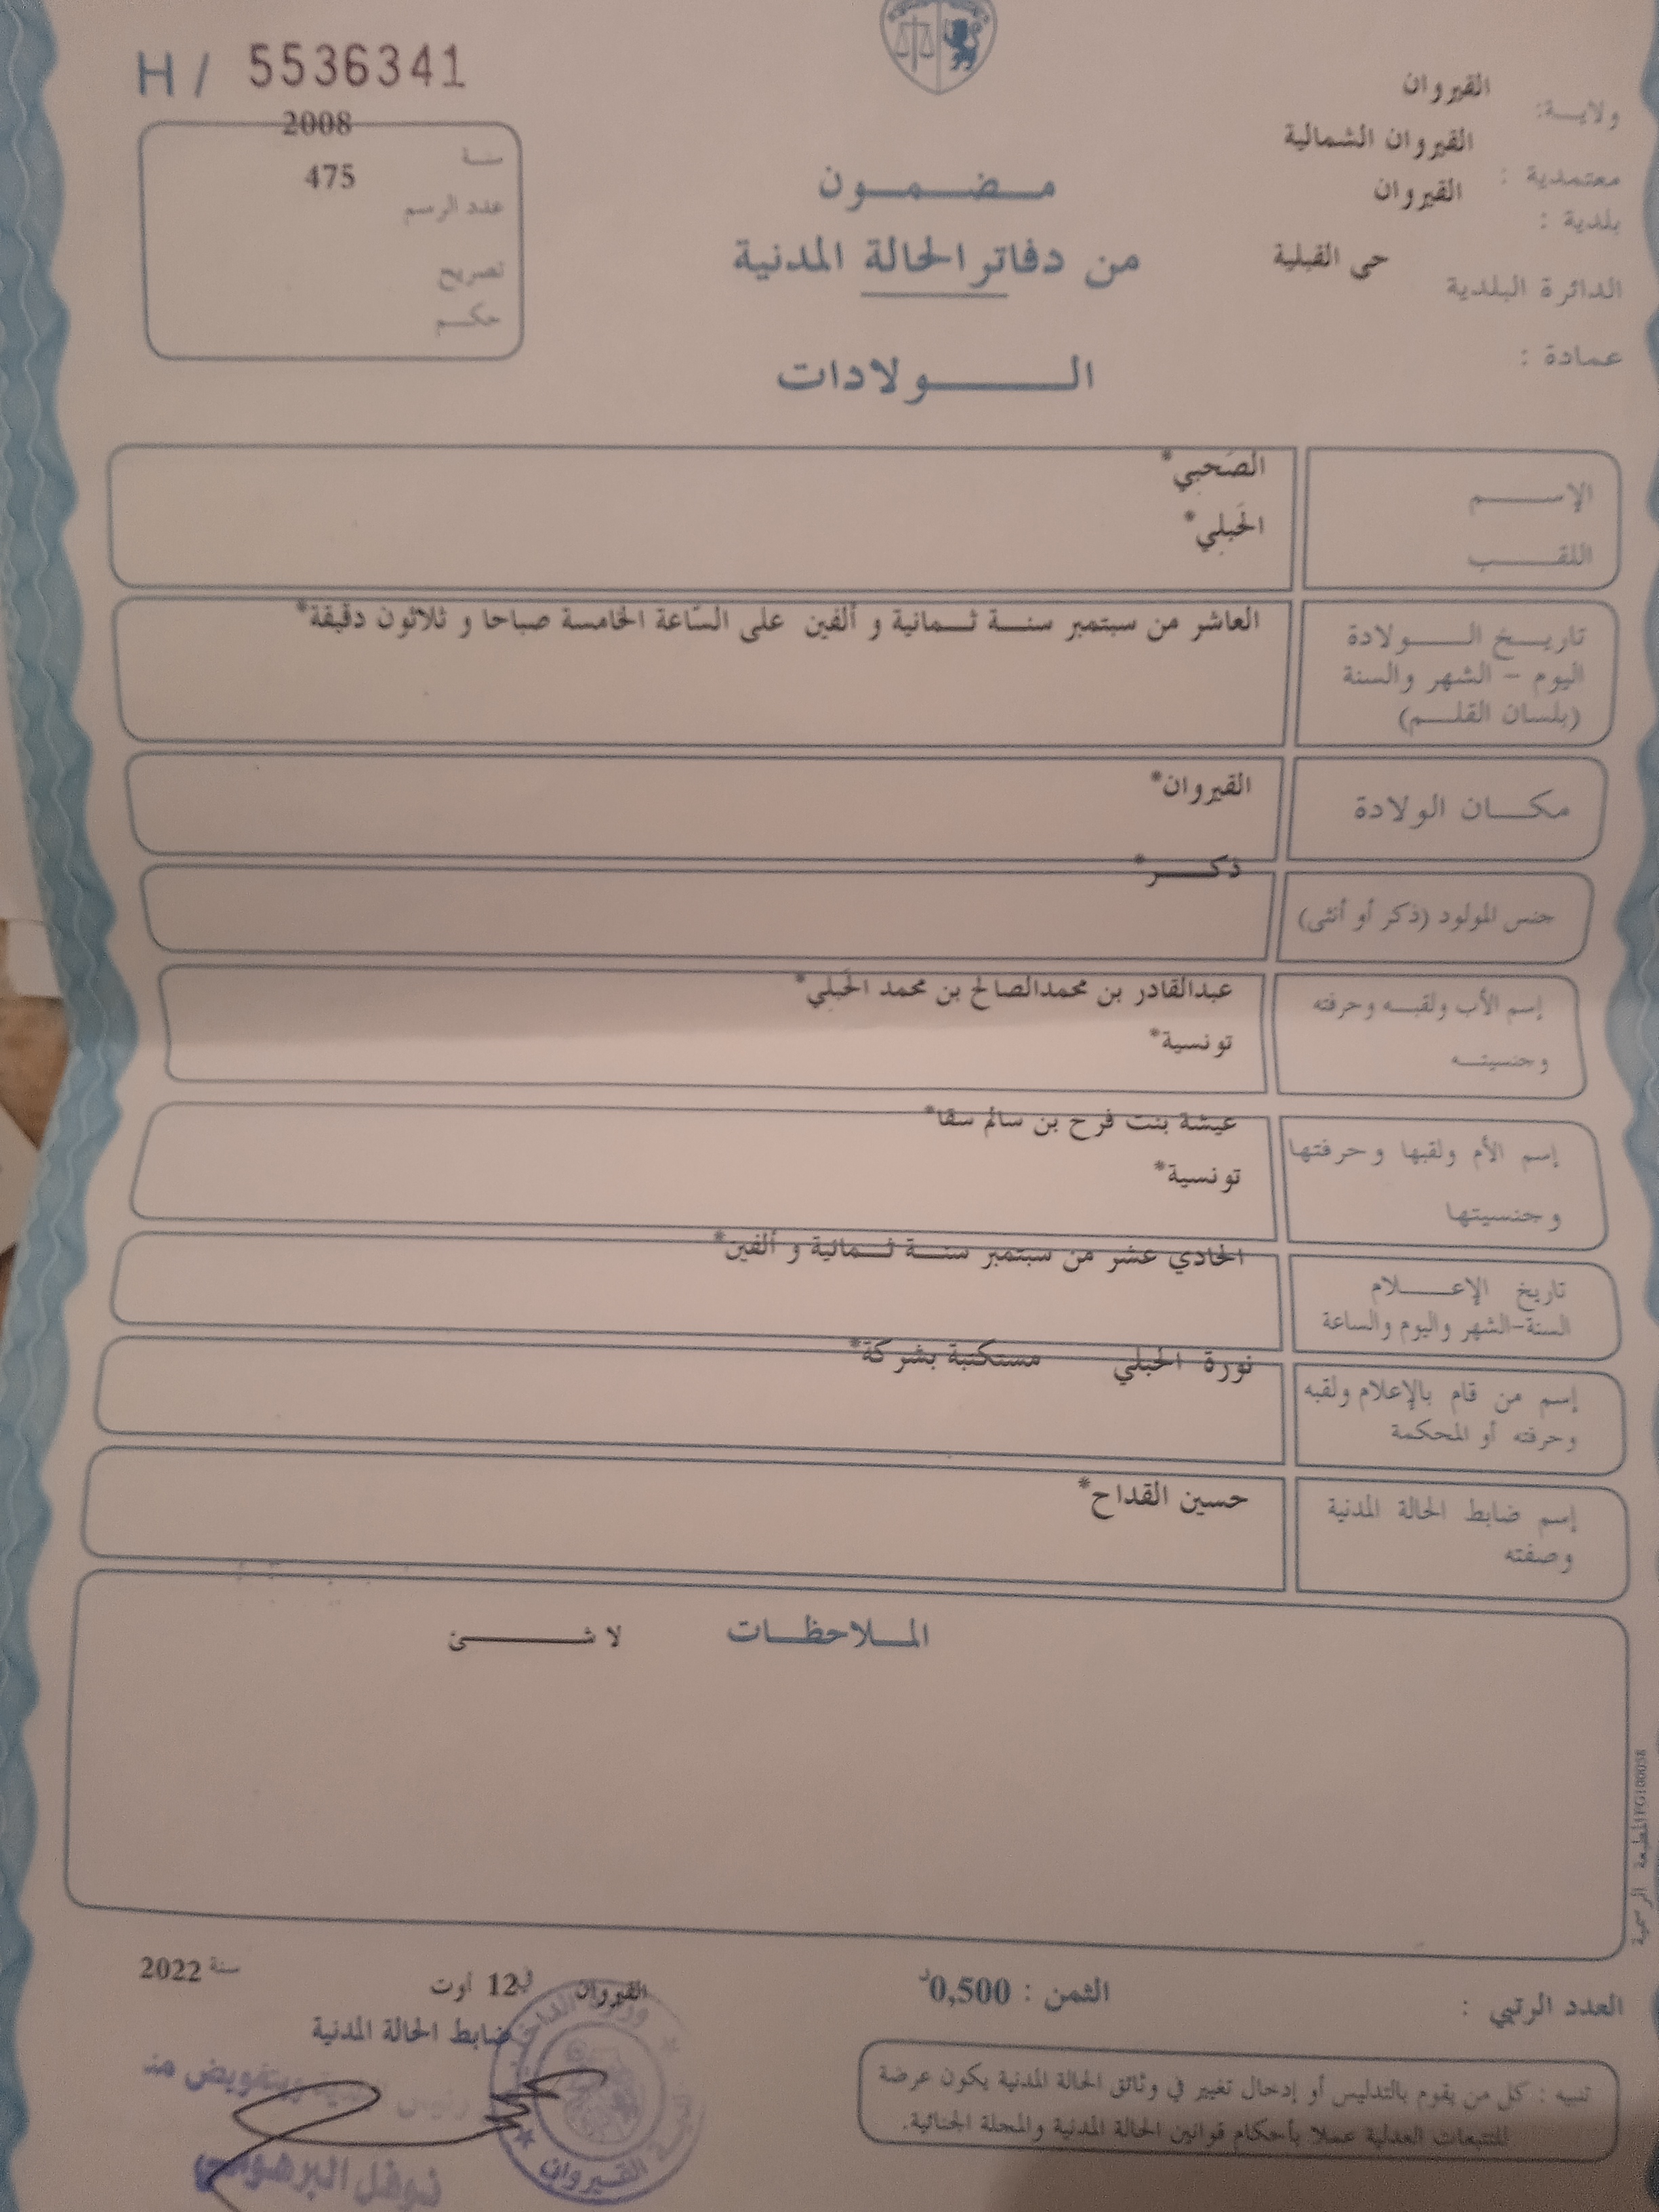 H / 5536341
ولاية: القيروان
معتمدية : القيروان الشمالية
بلدية : القيروان
الدائرة البلدية حى القبلية
عمادة :
سنة 2008
عدد الرسم 475
تصريح
حكم
مضمون
من دفاتر الحالة المدنية
الولادات
الإسم الصَحبي*
اللقب الحَبلي*
تاريخ الولادة العاشر من سبتمبر سنة ثمانية و ألفين على السّاعة الخامسة صباحا و ثلاثون دقيقة*
اليوم - الشهر والسنة
(بلسان القلم)
مكان الولادة القيروان*
جنس المولود (ذكر أو أنثى) ذكر*
إسم الأب ولقبه وحرفته عبدالقادر بن محمدالصالح بن محمد الحَبلي*
وجنسيته تونسية*
إسم الأم ولقبها وحرفتها عيشة بنت فرح بن سالم سقا*
وجنسيتها تونسية*
تاريخ الإعلام الحادي عشر من سبتمبر سنة ثمانية و ألفين*
السنة-الشهر واليوم والساعة
إسم من قام بالإعلام ولقبه نورة الحبلي مستكتبة بشركة*
وحرفته أو المحكمة
إسم ضابط الحالة المدنية حسين القداح*
وصفته
الملاحظات لا شئ
المطبعة الرسمية
العدد الرتبي :
الثمن : 0,500د
القيروان في 12 أوت سنة 2022
ضابط الحالة المدنية
رئيس البلدية وبتفويض منه
نوفل البرهومي
القيروان
تنبيه : كل من يقوم بالتدليس أو إدخال تغيير في وثائق الحالة المدنية يكون عرضة
للتتبعات العدلية عملا بأحكام قوانين الحالة المدنية والمجلة الجنائية.